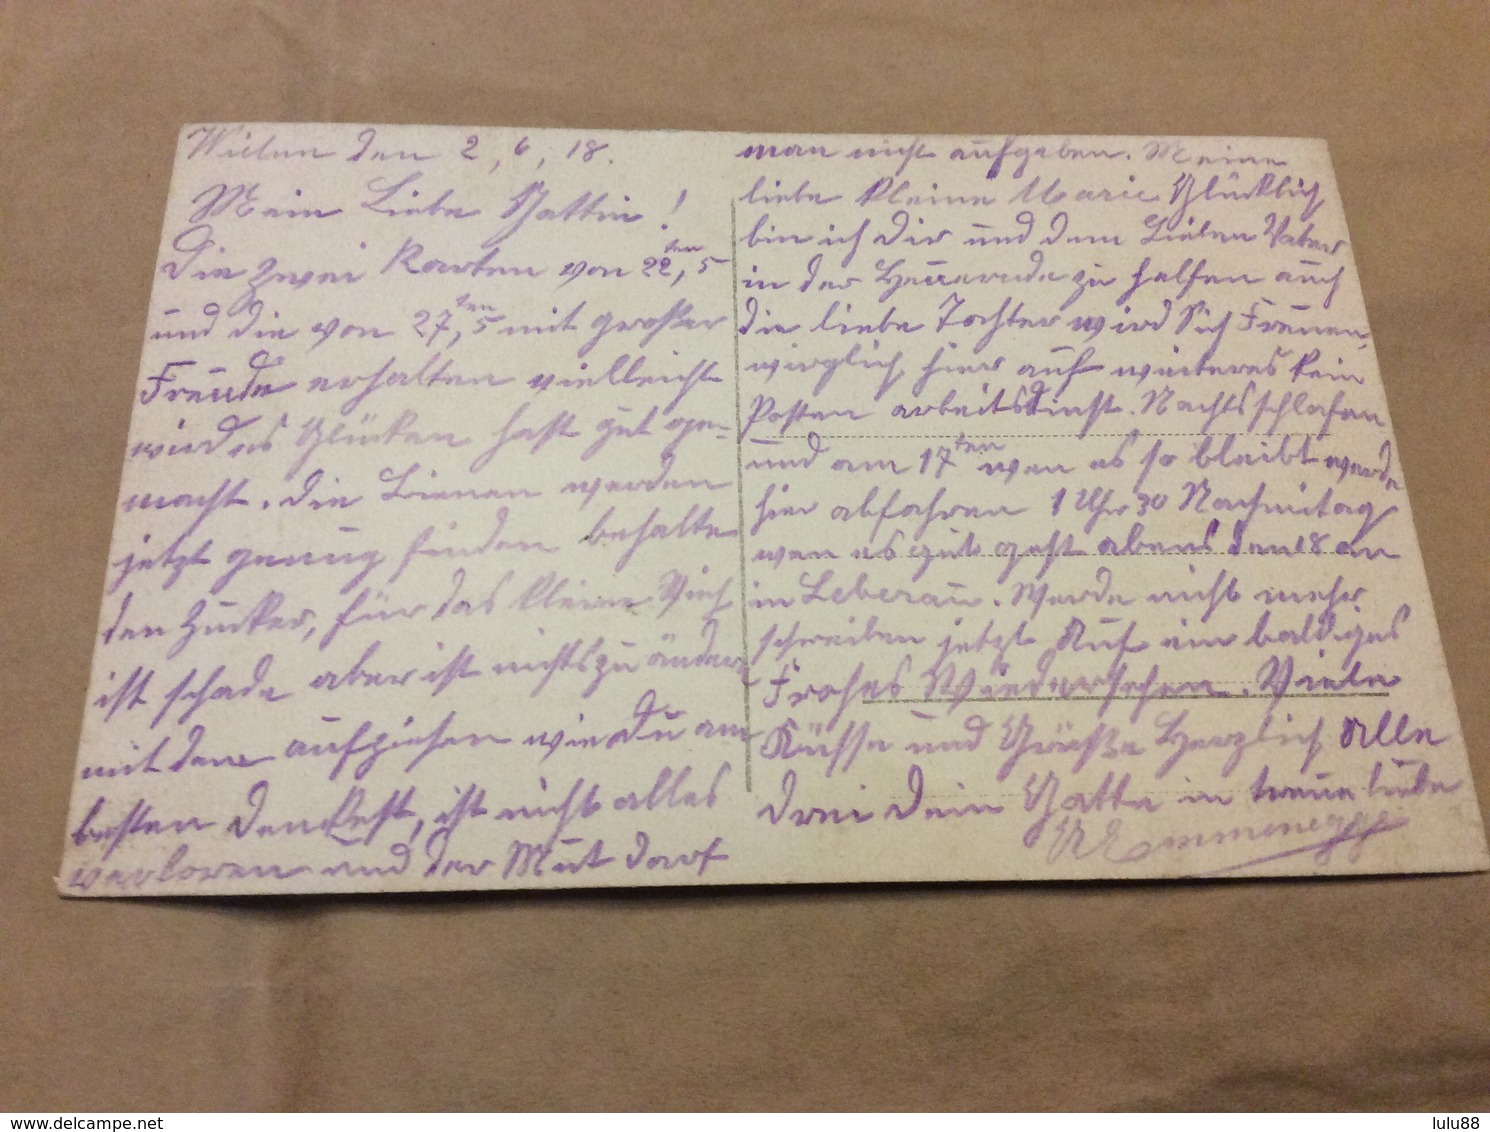 Wielen den 2, 6, 18.
Mein Liebe Gattin!
Die zwei Karten von 22ten, 5
und die von 27ten, 5 mit großer
Freude erhalten vielleicht
wird es Glücken hast gut ge-
macht. die Bienen werden
jetzt genug finden behalte
den Zucker, für das kleine Vieh
ist schade aber ist nichts zu ändern
mit dem aufziehen wie du am
besten denkest, ist nicht alles
verloren und der Mut darf
man nicht aufgeben. Meine
liebe kleine Marie Glücklich
bin ich Dir und dem Lieben Vater
in der Heuernde zu helfen auch
die liebe Tochter wird Sich Freuen,
wirglich hier auf weiteres kein
Posten arbeitsdinst. Nachts schlafen
und am 17ten wen es so bleibt werde
hier abfahren 1 Uhr 30 Nachmitag
wen es gut geht abens den 18 an
in Leberau. Werde nicht mehr
schreiben jetzt Auf ein baldiges
Frohes Wiedersehen. Viele
Küsse und Grüße Herzlich Alle
drei Dein Gatte in treue liebe
Emmenegge
lulu88